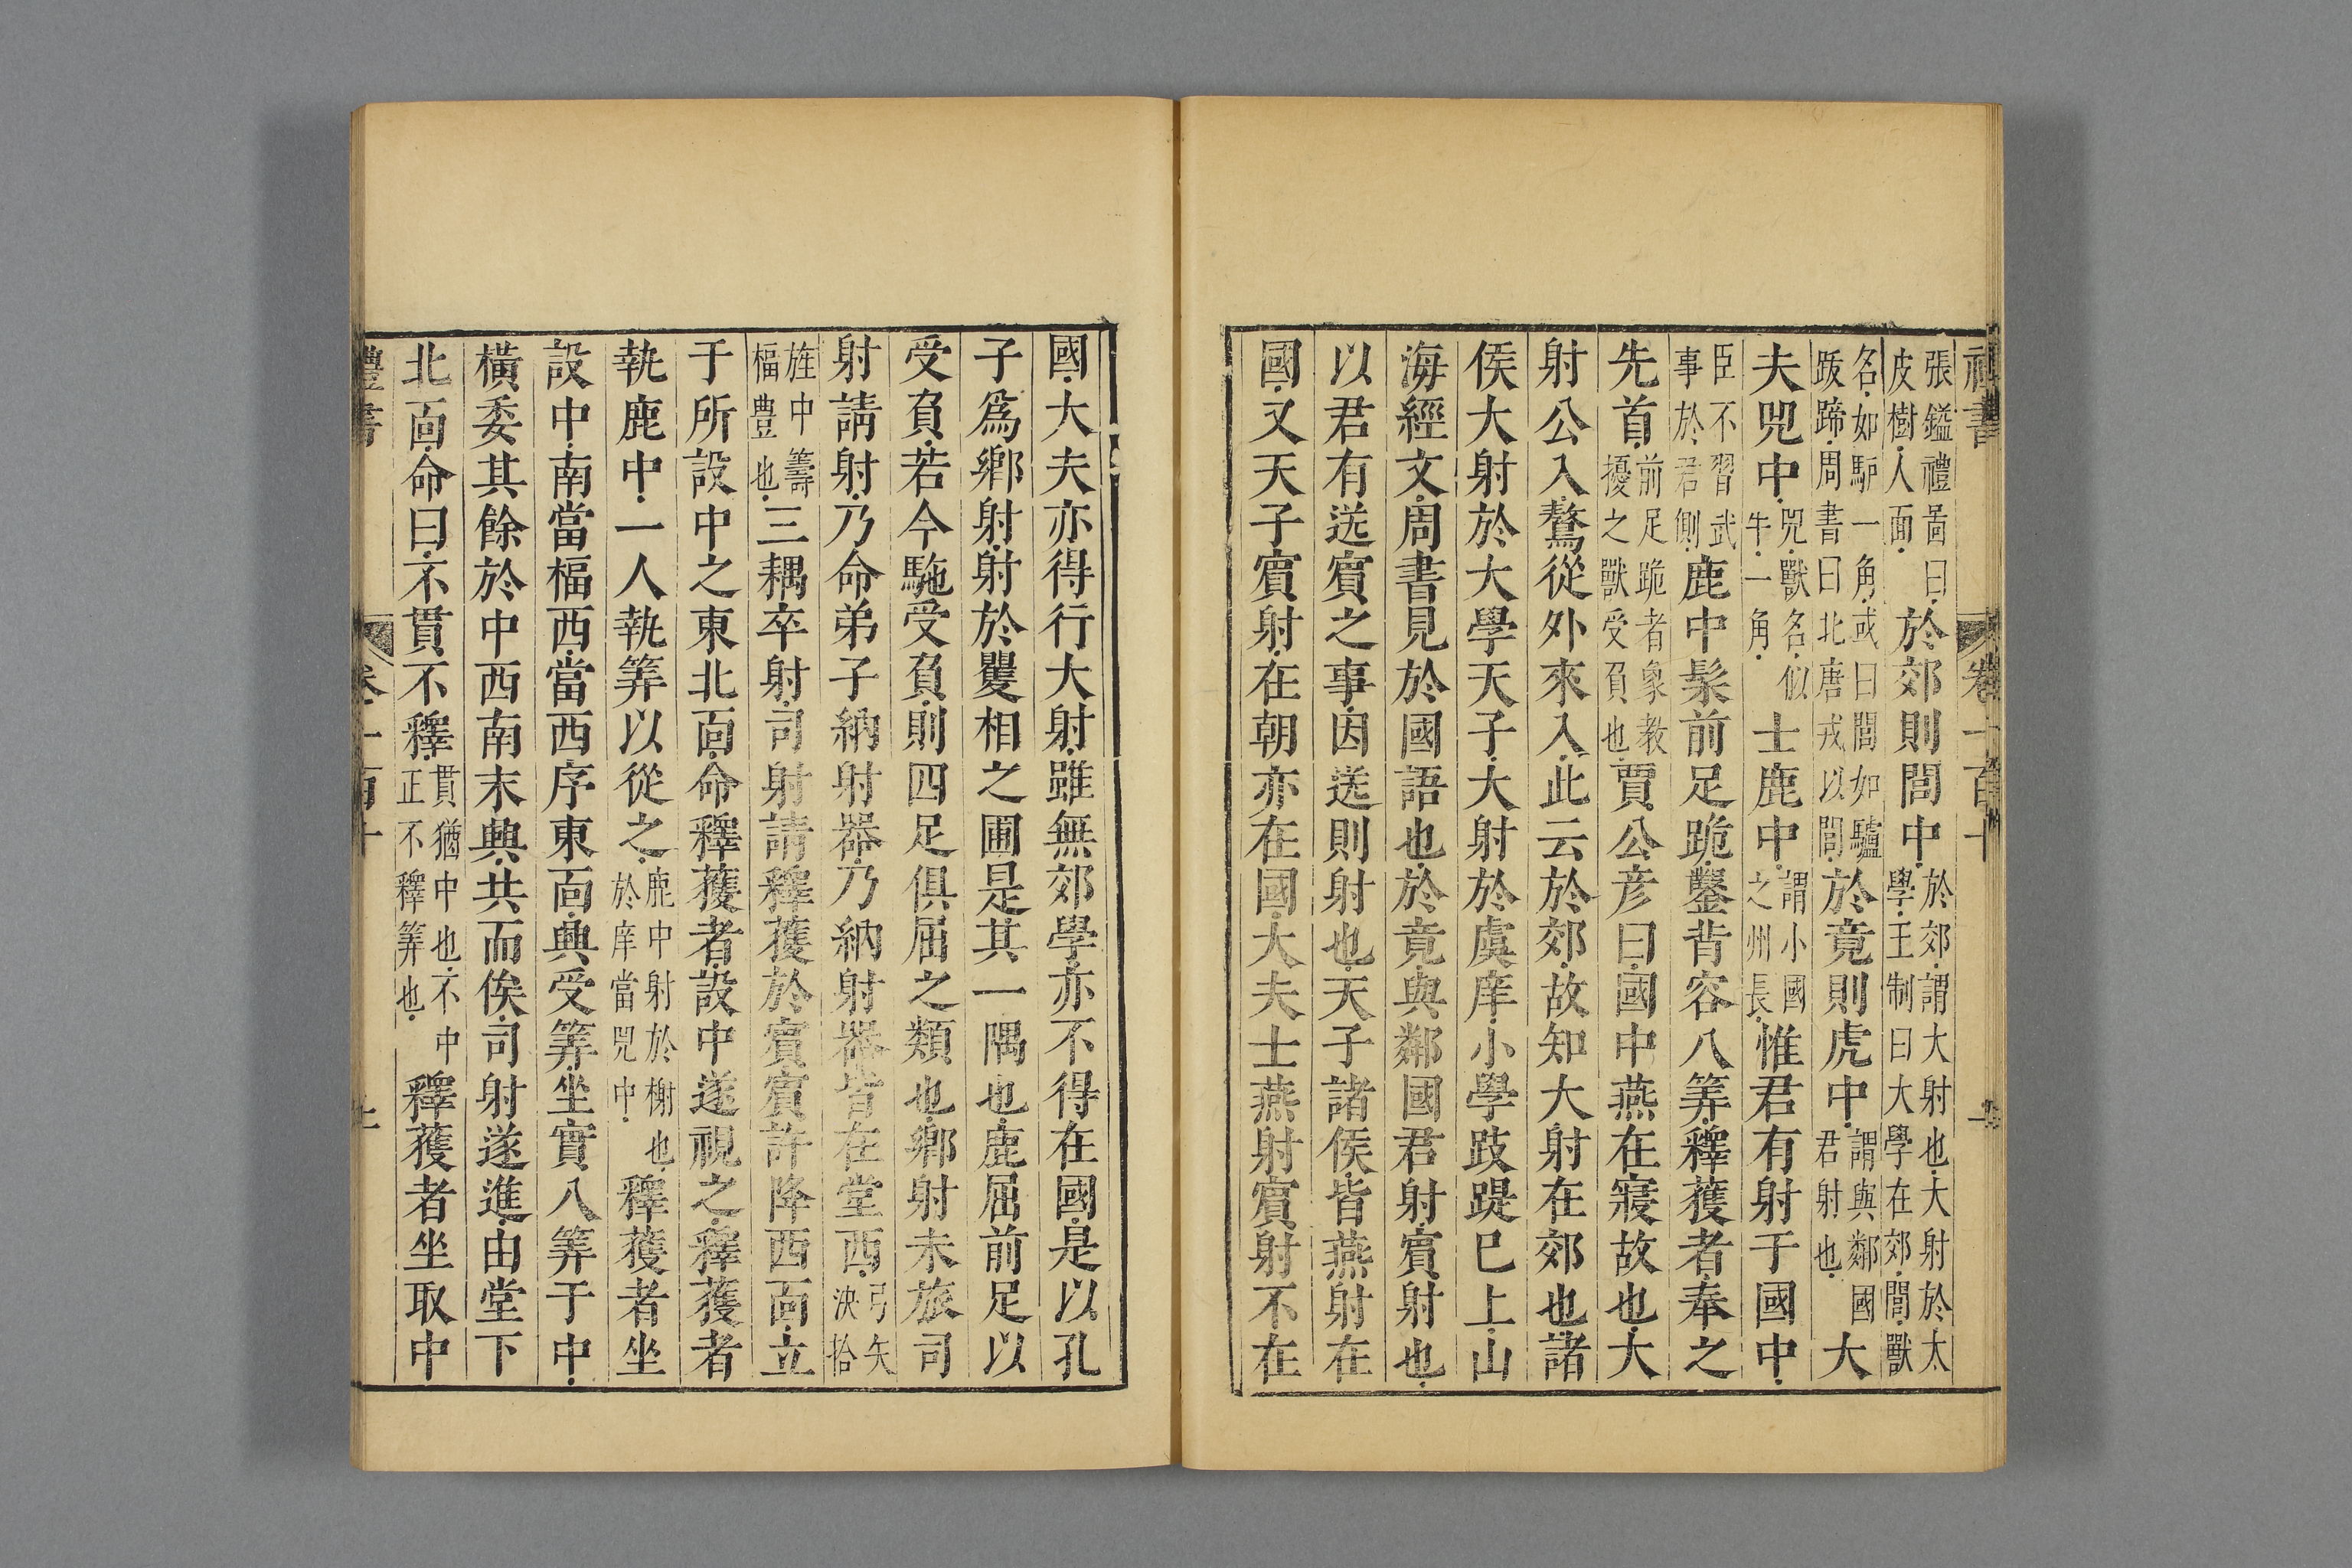 書 卷一百十
張鎰禮啚曰皮樹人面於郊則閭中於郊謂大射也大射於太學王制曰大學在郊閭獸
名如馿一角或曰閭如驢跂蹄周書曰北唐戎以閭於竟則虎中謂與鄰國君射也大
夫兕中兕獸名似牛一角士鹿中謂小國之州長惟君有射于國中
臣不習武事於君側鹿中髹前足跪鑿背容八筭釋獲者奉之
先首前足跪者象教擾之獸受負也賈公彦曰國中燕在寢故也大
射公入驁從外來入此云於郊故知大射在郊也諸
侯大射於大學天子大射於虞庠小學跂踶巳上山
海經文周書見於國語也於竟與鄰國君射賔射也
以君有送賔之事因送則射也天子諸侯皆燕射在
國又天子賔射在朝亦在國大夫士燕射賔射不在
國大夫亦得行大射雖無郊學亦不得在國是以孔
子爲鄉射射於矍相之圃是其一隅也鹿屈前足以
受負若今駞受負則四足俱屈之類也鄉射未旅司
射請射乃命弟子納射器乃納射器皆在堂西弓矢決拾
旌中籌楅豊也三耦卒射司射請釋獲於賔賔許降西面立
于所設中之東北面命釋獲者設中遂視之釋獲者
執鹿中一人執筭以從之鹿中射於榭也於庠當兕中釋獲者坐
設中南當楅西當西序東面興受筭坐實八筭于中
橫委其餘於中西南末興共而俟司射遂進由堂下
北面命曰不貫不釋貫猶中也不中正不釋筭也釋獲者坐取中
禮書 卷一百十